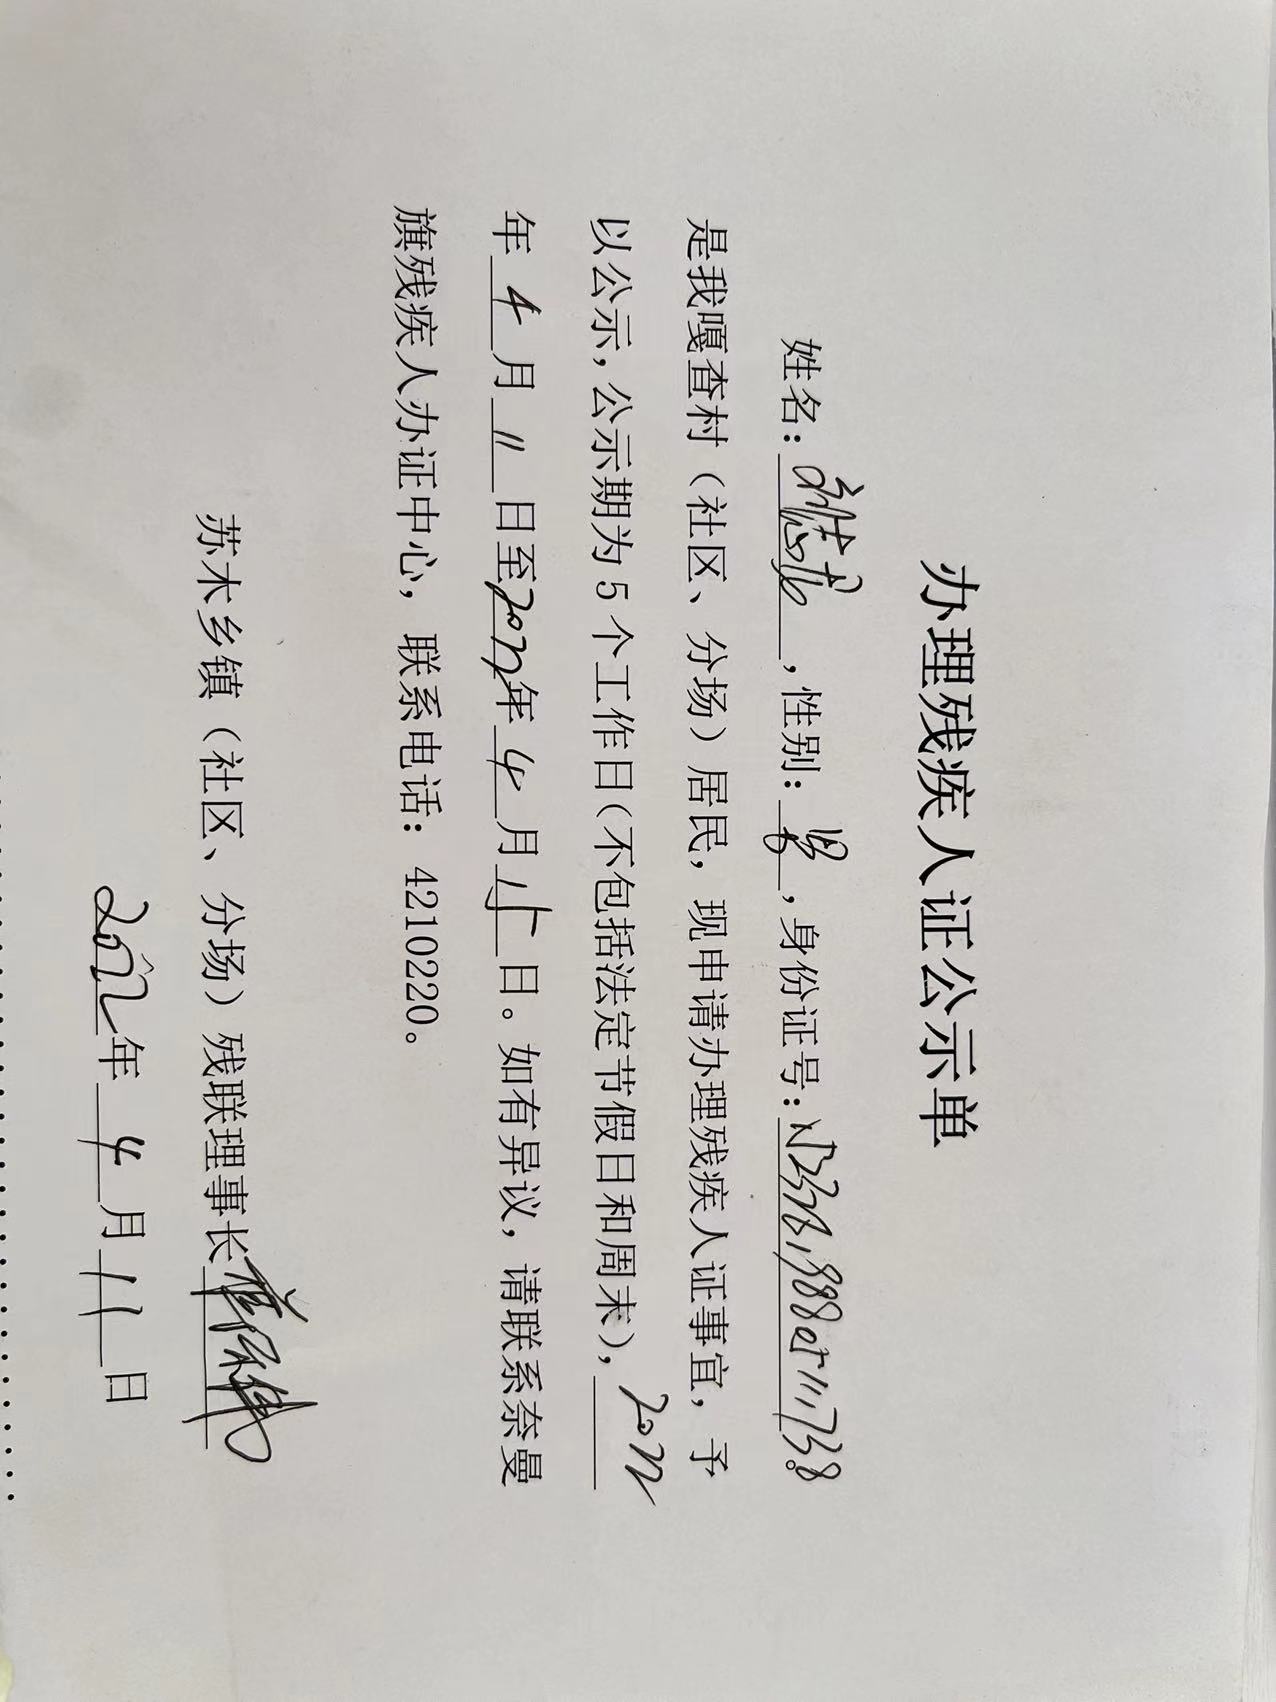 办理残疾人证公示单
姓名：，性别：男，身份证号：
是我嘎查村（社区、分场）居民，现申请办理残疾人证事宜，予
以公示，公示期为5个工作日（不包括法定节假日和周末），2022
年4月11日至2022年4月15日。如有异议，请联系奈曼
旗残疾人办证中心，联系电话：4210220。
苏木乡镇（社区、分场）残联理事长
2022年4月11日